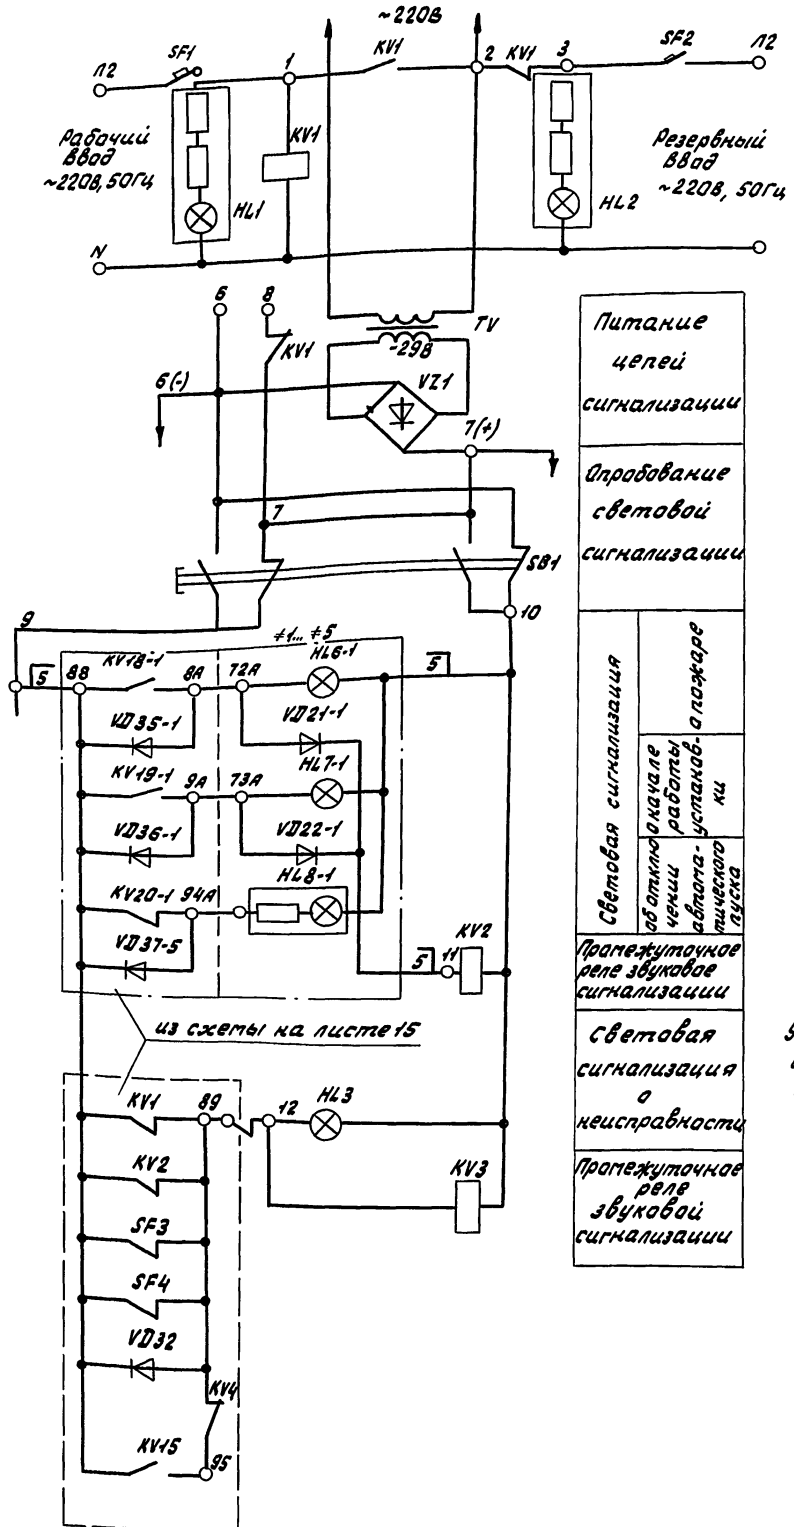 ~220В
SF1
1
KV1
2
KV1
3
SF2
Л2
Л2
Рабочий
ввод
~220В, 50Гц
KV1
HL1
Резервный
ввод
~220В, 50Гц
HL2
N
6
8
KV1
TV
~29В
VZ1
6(-)
7(+)
7
SB1
10
9
≠1... ≠5
5
88
KV18-1
8А
72А
HL6-1
5
VD35-1
VD21-1
KV19-1
9А
73А
HL7-1
VD36-1
VD22-1
KV20-1
94А
HL8-1
VD37-5
5
11
KV2
из схемы на листе 15
KV1
89
12
HL3
KV2
KV3
SF3
SF4
VD32
KV4
KV15
95
Питание
цепей
сигнализации
Опробование
световой
сигнализации
Световая сигнализация
о пожаре
о начале
работы
установ-
ки
об отклю
чении
автома-
тического
пуска
Промежуточное
реле звуковое
сигнализации
Световая
сигнализация
о
неисправности
Промежуточное
реле
звуковой
сигнализации